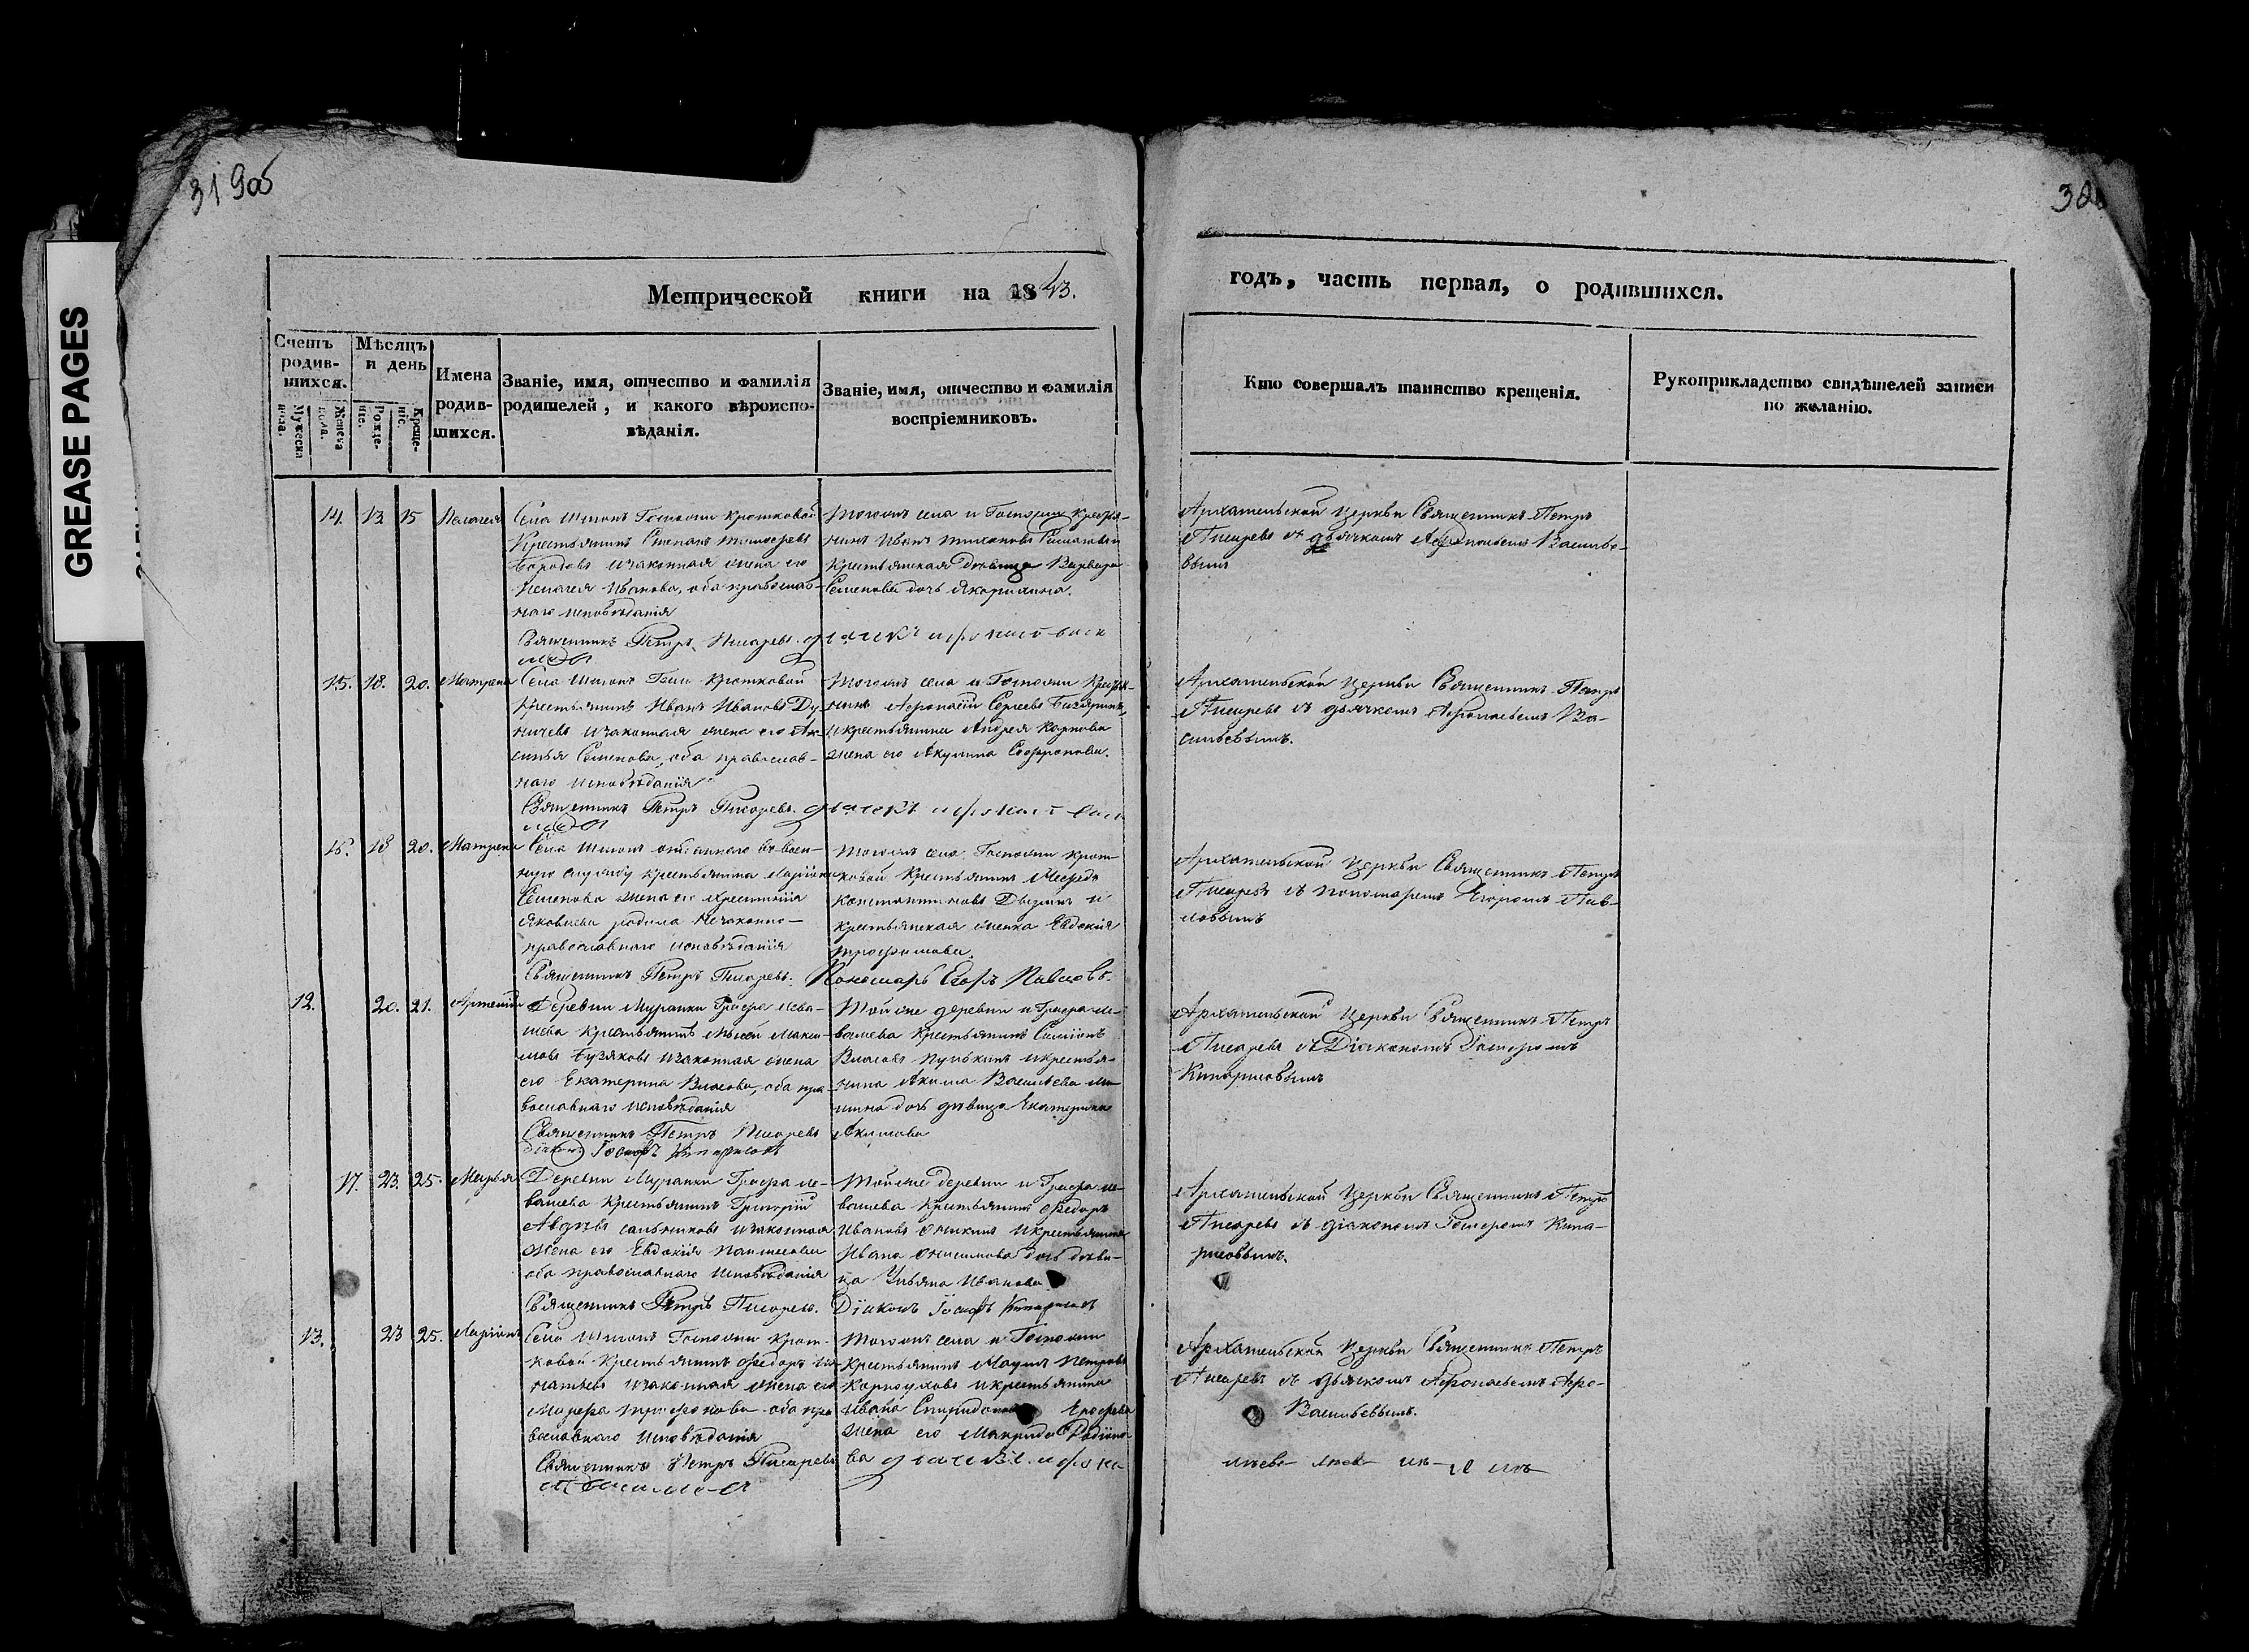 319об
320
GREASE PAGES
Метрической книги на 1843.
годъ, часть первая, о родившихся.
Счетъ родив-шихся.
Мужеска пола.
Женска пола.
Мѣсяцъ и день
Рожде-ніе.
Креще-ніе.
Имена родив-шихся.
Званіе, имя, отчество и фамилія родителей, и какого вѣроиспо-вѣданія.
Званіе, имя, отчество и фамилія воспріемниковъ.
Кто совершалъ таинство крещенія.
Рукоприкладство свидѣтелей записи по желанію.
14. 13 15 Пелагея
Села Шигонъ Госпожи Кротковой
Крестьянинъ Степанъ Тимофеевъ
изаконная жена его
Пелагея Иванова, оба православ-
наго исповѣданія
Священникъ Петръ Писаревъ.
Тогожъ села и Госпожи Крестья-
нинъ Иванъ Тихановъ
Крестьянская Дѣвица Варвара
Семенова дочь
Архангельской Церкви Священникъ Петръ
Писаревъ съ дьячкомъ Афонасьемъ Василье-
вымъ
15. 18. 20. Матрена
Села Шигонъ Гжи Кротковой
Крестьянинъ Иванъ Ивановъ Ду-
ничевъ изаконная жена его Ак-
синья Семенова, оба православ-
наго исповѣданія
Священникъ Петръ Писаревъ.
Тогожъ села и Госпожи Крестья-
нинъ Афонасій Сергеевъ
икрестьянина Андрея Карпова
жена его Акулина Софронова.
Архангельской Церкви Священникъ Петръ
Писаревъ съ дьячкомъ Афонасьемъ Ва-
сильевымъ.
16. 18 20. Матрена
Села Шигонъ отданнаго въ воен-
ную службу крестьянина Ларіона
Семенова жена его Христинія
Яковлева родила незаконно-
православнаго исповѣданія
Священникъ Петръ Писаревъ. Пономарь Егоръ Павловъ.
Тогожъ села Госпожи Крот-
ковой Крестьянинъ
Константиновъ и
крестьянская женка Евдокія
Трофимова.
Архангельской Церкви Священникъ Петръ
Писаревъ съ пономаремъ Егоромъ Пав-
ловымъ
12. 20. 21. Артемій
Деревни Муранки Графа Лева-
шева Крестьянинъ Макси-
мовъ Бузяковъ изаконная жена
его Екатерина Власова, оба пра-
вославнаго исповѣданія
Священникъ Петръ Писаревъ
Діаконъ Іосифъ Кипарисовъ
Тойже деревни и Графа Ле-
вашева Крестьянинъ Симіонъ
Власовъ икрестья-
нина Акима Васильева
дочь дѣвица Екатерина
Акимова
Архангельской Церкви Священникъ Петръ
Писаревъ съ Діакономъ Іосифомъ
Кипарисовымъ
17. 23. 25. Марья
Деревни Муранки Графа Ле-
вашева Крестьянинъ Григорій
Авдѣевъ Сальниковъ изаконная
жена его Евдокія
оба православнаго исповѣданія
Священникъ Петръ Писаревъ. Діаконъ Іосифъ Кипарисовъ
Тойже деревни и Графа Ле-
вашева Крестьянинъ Федоръ
Ивановъ икрестьянина
Ивана Онисимова дочь дѣви-
ца Ульяна Иванова
Архангельской Церкви Священникъ Петръ
Писаревъ съ діакономъ Іосифомъ Кипа-
рисовымъ.
13. 23 25. Ларіонъ
Села Шигонъ Госпожи Крот-
ковой Крестьянинъ Федоръ Иг-
натьевъ изаконная жена его
Марфа Трифонова оба пра-
вославнаго исповѣданія
Священникъ Петръ Писаревъ
Тогожъ села и Госпожи
Крестьянинъ Петровъ
икрестьянина
Ивана Спиридонова
жена его Макрида Радіоно-
ва
Архангельской Церкви Священникъ Петръ
Писаревъ съ дьячкомъ Афонасьемъ
Васильевымъ.